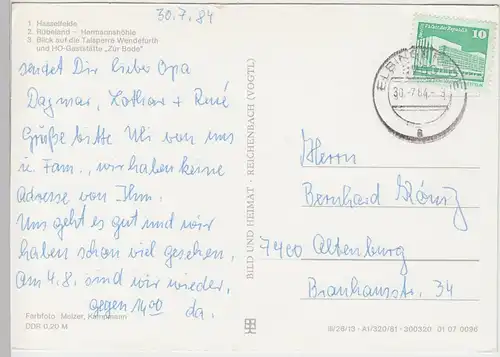 30.7.84
1. Hasselfelde
2. Rübeland - Hermannshöhle
3. Blick auf die Talsperre Wendefurth
und HO-Gaststätte „Zur Bode"
sendet Dir lieber Opa
Dagmar, Lothar + René
Grüße bitte Uli von uns
u. Fam., wir haben keine
Adresse von Ihm.
Uns geht es gut und wir
haben schon viel gesehen,
Am 4.8. sind wir wieder,
gegen 14⁰⁰ da.
Farbfoto Melzer, Kampmann
DDR 0,20 M
BILD UND HEIMAT · REICHENBACH (VOGTL)
10
30.-7.84.-
a
Herrn
Bernhard
7400 Altenburg
Brauhausstr. 34
III/26/13 · A1/320/81 · 300320 01 07 0096